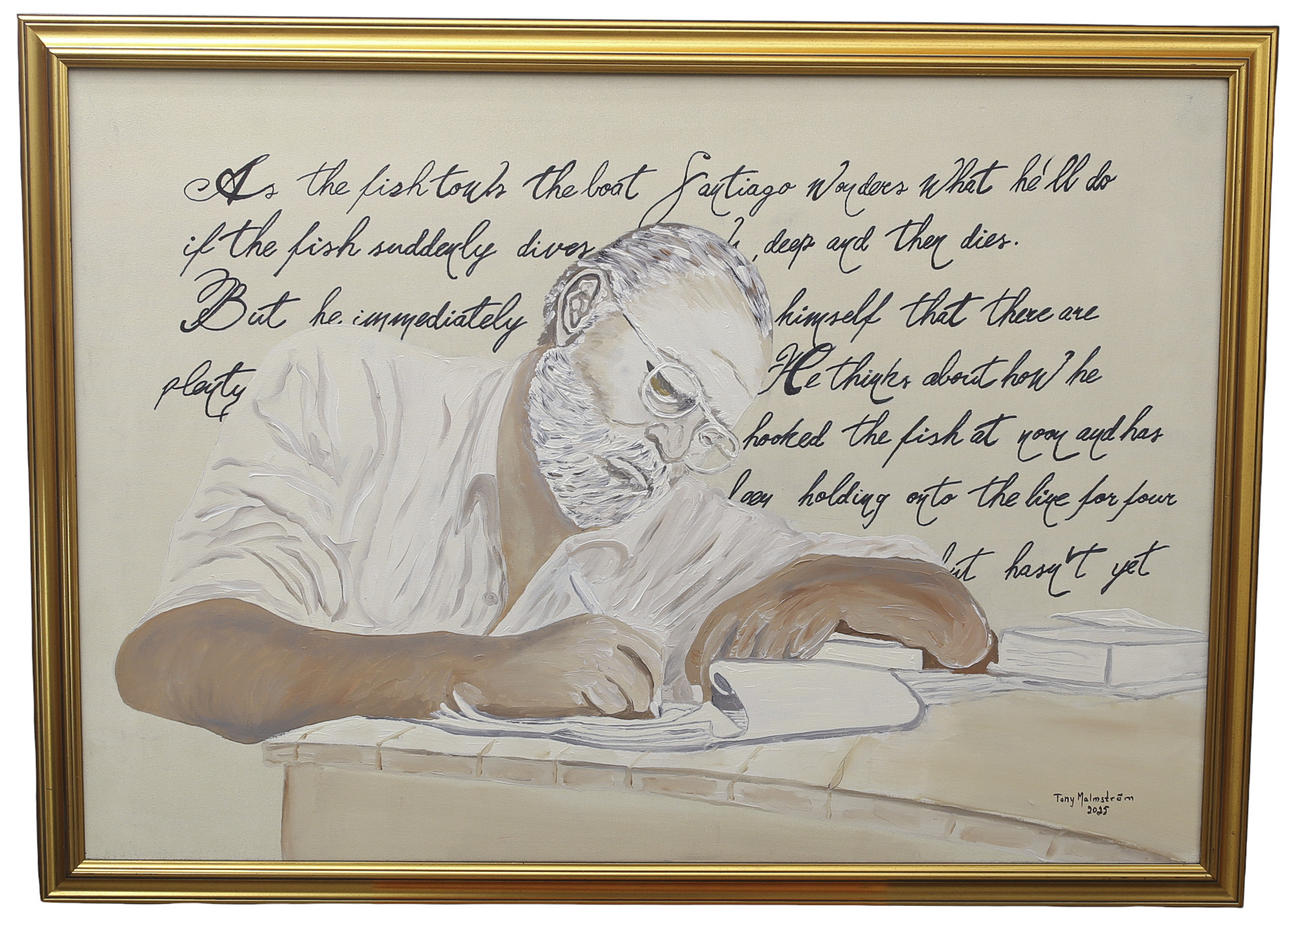 As the fish tow's the boat Santiago wonders what he'll do
if the fish suddenly dives , deep and then dies.
But he immediately himself that there are
plenty He thinks about how he
hooked the fish at noon and has
holding onto the line for four
but hasn't yet
Tony Malmström
2025